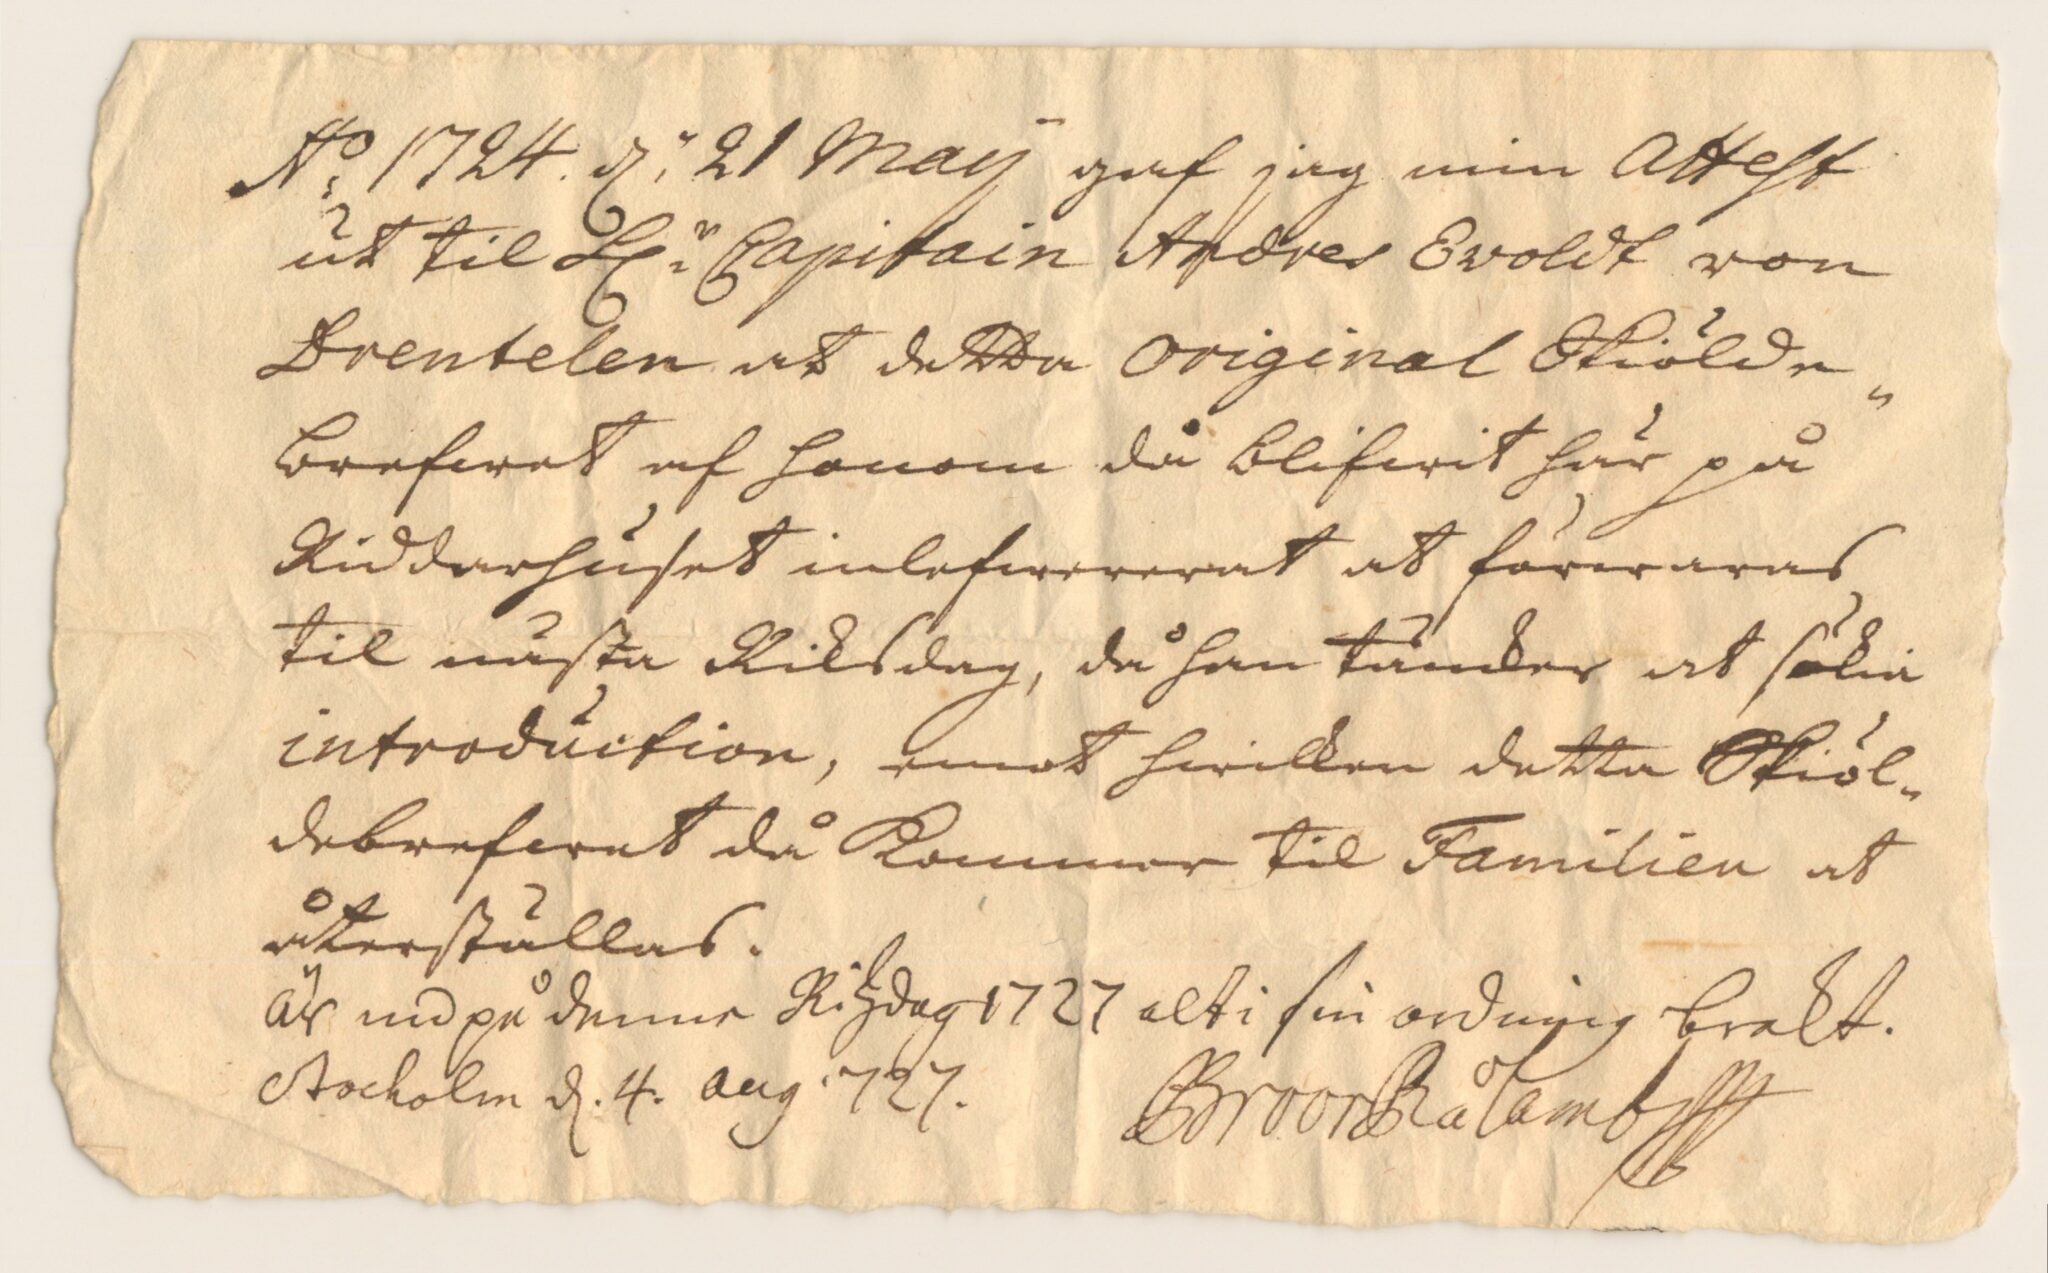 No 1724. d. 21 Maij gaf jag min Attest
ut til Hr Capitain Andres Evoldt von
Drentelen at detta original Skiölde„
brefwet af honom då blifwit här på
Ridderhuset inlefwererat at förwaras
til nästa Riksdag, då han täncker at sökia
introduction, emot hwilken detta Skiöl„
debrefwet då kommer til Familien at
återställas.
är nu på denne Rikzdag 1727 alt i sin ordning brakt.
Stocholm d. 4. aug 1727.
Broor Rålamb